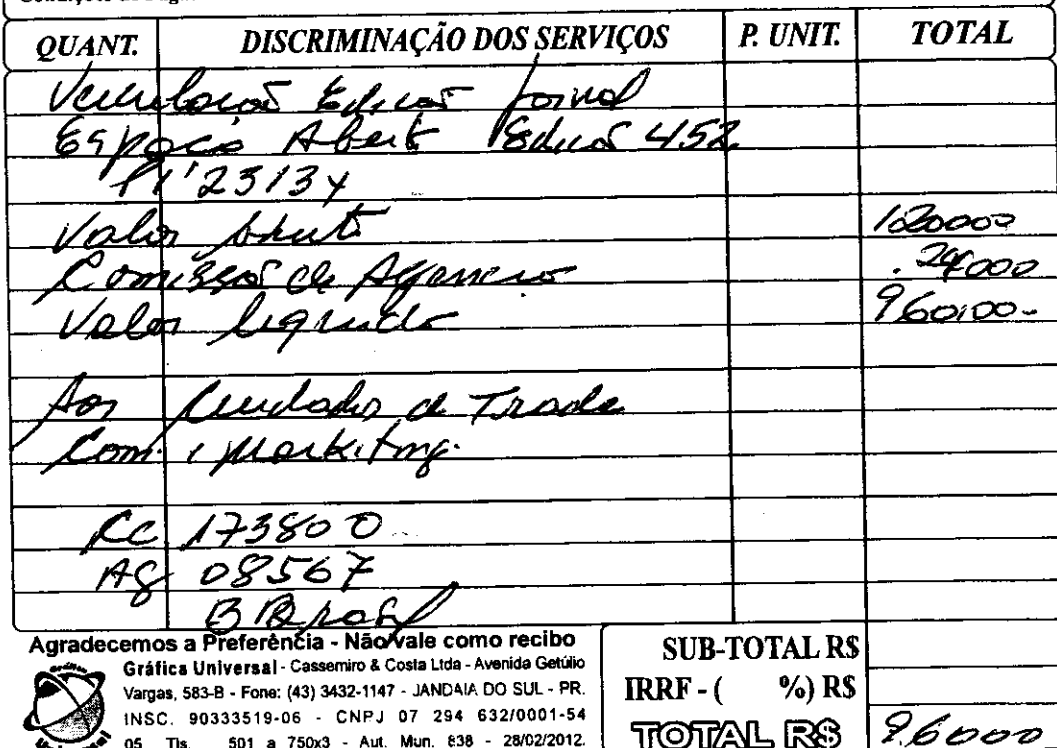 QUANT. DISCRIMINAÇÃO DOS SERVIÇOS P. UNIT. TOTAL
Veiculação Edição Jornal
Espaço Abert Edição 452
PI 23134
Valor brut 120000
Comissão de Agencia 24000
Valor liquido 960,00-
Aos Cuidado de Trade
Com. Markiting.
CC 173800
AG 08567
B Brasil
Agradecemos a Preferência - Não vale como recibo
Gráfica Universal - Cassemiro & Costa Ltda - Avenida Getúlio
Vargas, 583-B - Fone: (43) 3432-1147 - JANDAIA DO SUL - PR.
INSC. 90333519-06 - CNPJ 07 294 632/0001-54
05 Tls. 501 a 750x3 - Aut. Mun. 838 - 28/02/2012.
SUB-TOTAL R$
IRRF - ( %) R$
TOTAL R$ 96000